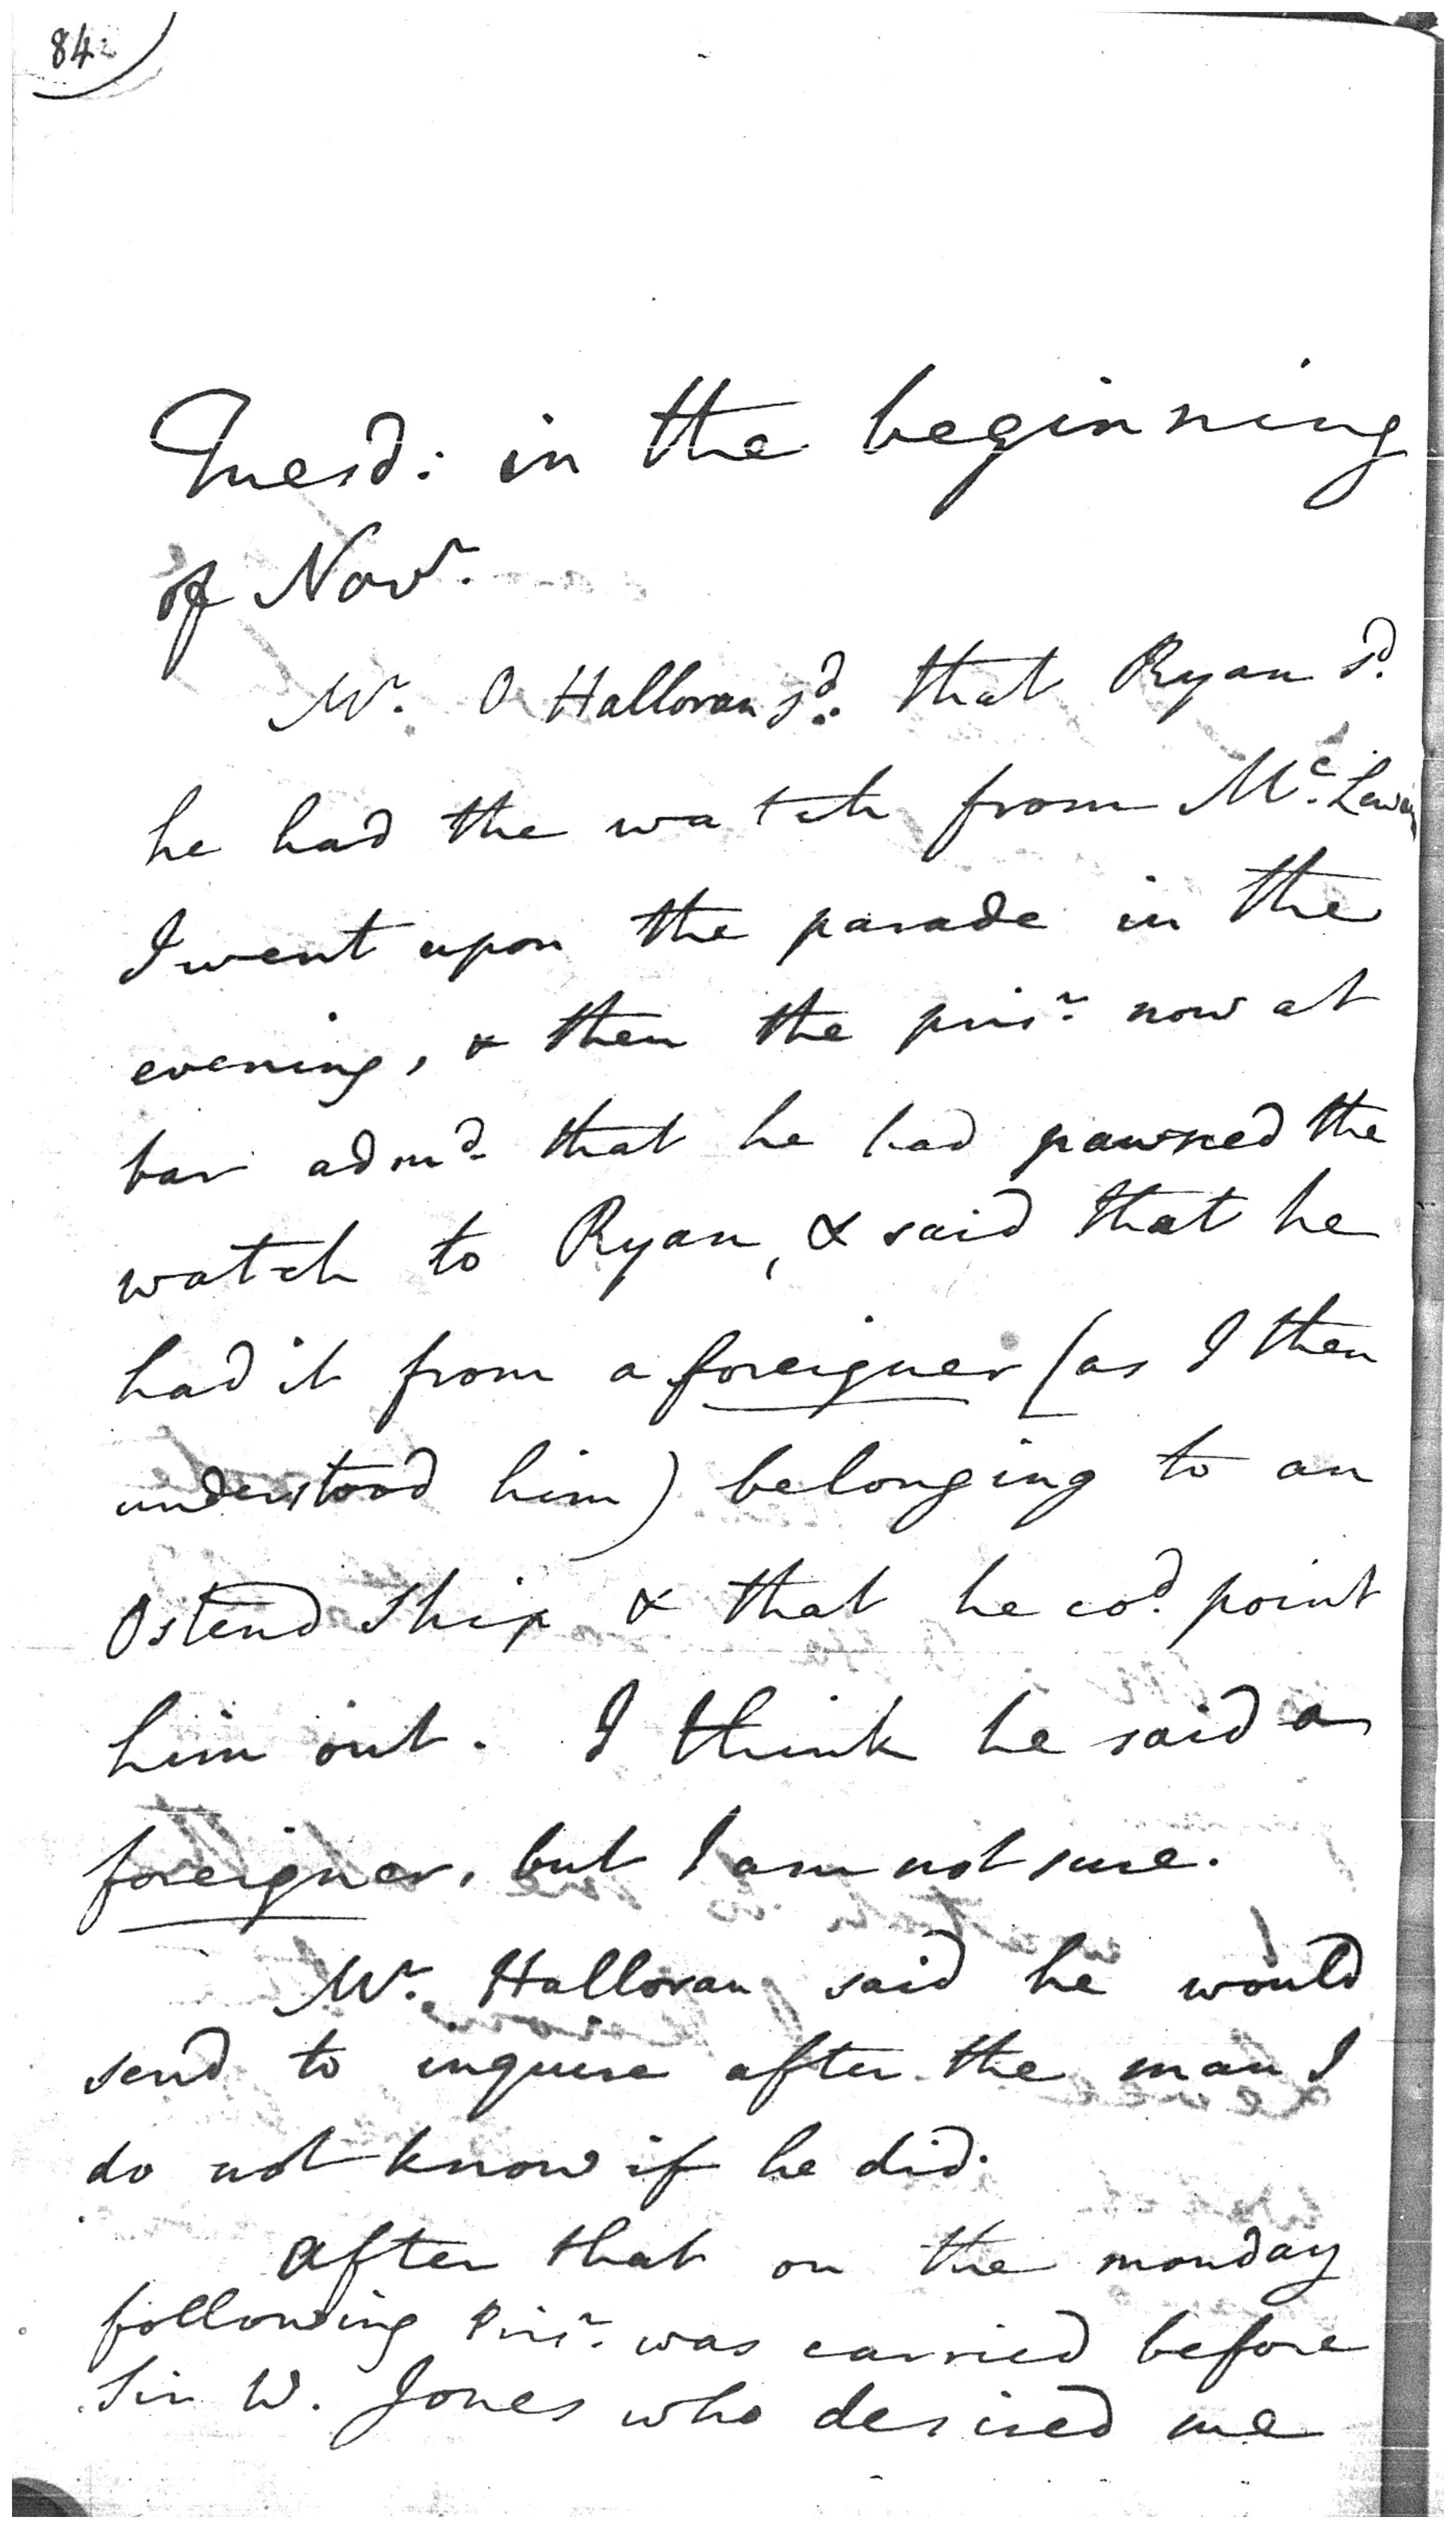 84
Tuesd: in the beginning
of Novr.
Mr. O Halloran sd. that Ryan sd.
he had the watch from Mc.
I went upon the parade in the
evening, & then the prisr. now at
bar admd. that he had pawned the
watch to Ryan, & said that he
had it from a foreigner (as I then
understood him) belonging to an
Ostend Ship & that he cod. point
him out. I think he said a
foreigner, but I am not sure.
Mr. Halloran said he would
send to inquire after the man I
do not know if he did.
After that on the monday
following Prisr. was carried before
Sir W. Jones who desired me